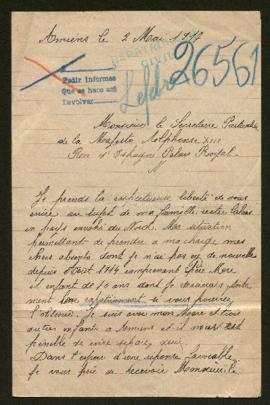 Amiens le 2 Mai 1917
26561
Pedir informes
que se hace así
Devolver
Monsieur le Secrétaire Particulier
de sa Majesté Alphonse XIII
Roi d'Espagne Palais Royal
Je prends la respectueuse liberté de vous
écrire au sujet de ma famille restée
en pays envahi du Nord. Ma situation
permettant de prendre à ma charge mes
chers absents dont je n'ai pas eu de nouvelle
depuis d'Août 1914 comprenant Père Mère
et enfant de 10 ans dont je
rapatriement si vous pouviez
l'obtenir. Je suis avec mon
autres enfants à Amiens et il nous est
pénible de vivre séparé
Dans l'espoir d'une réponse favorable
Je vous prie de recevoir Monsieur le